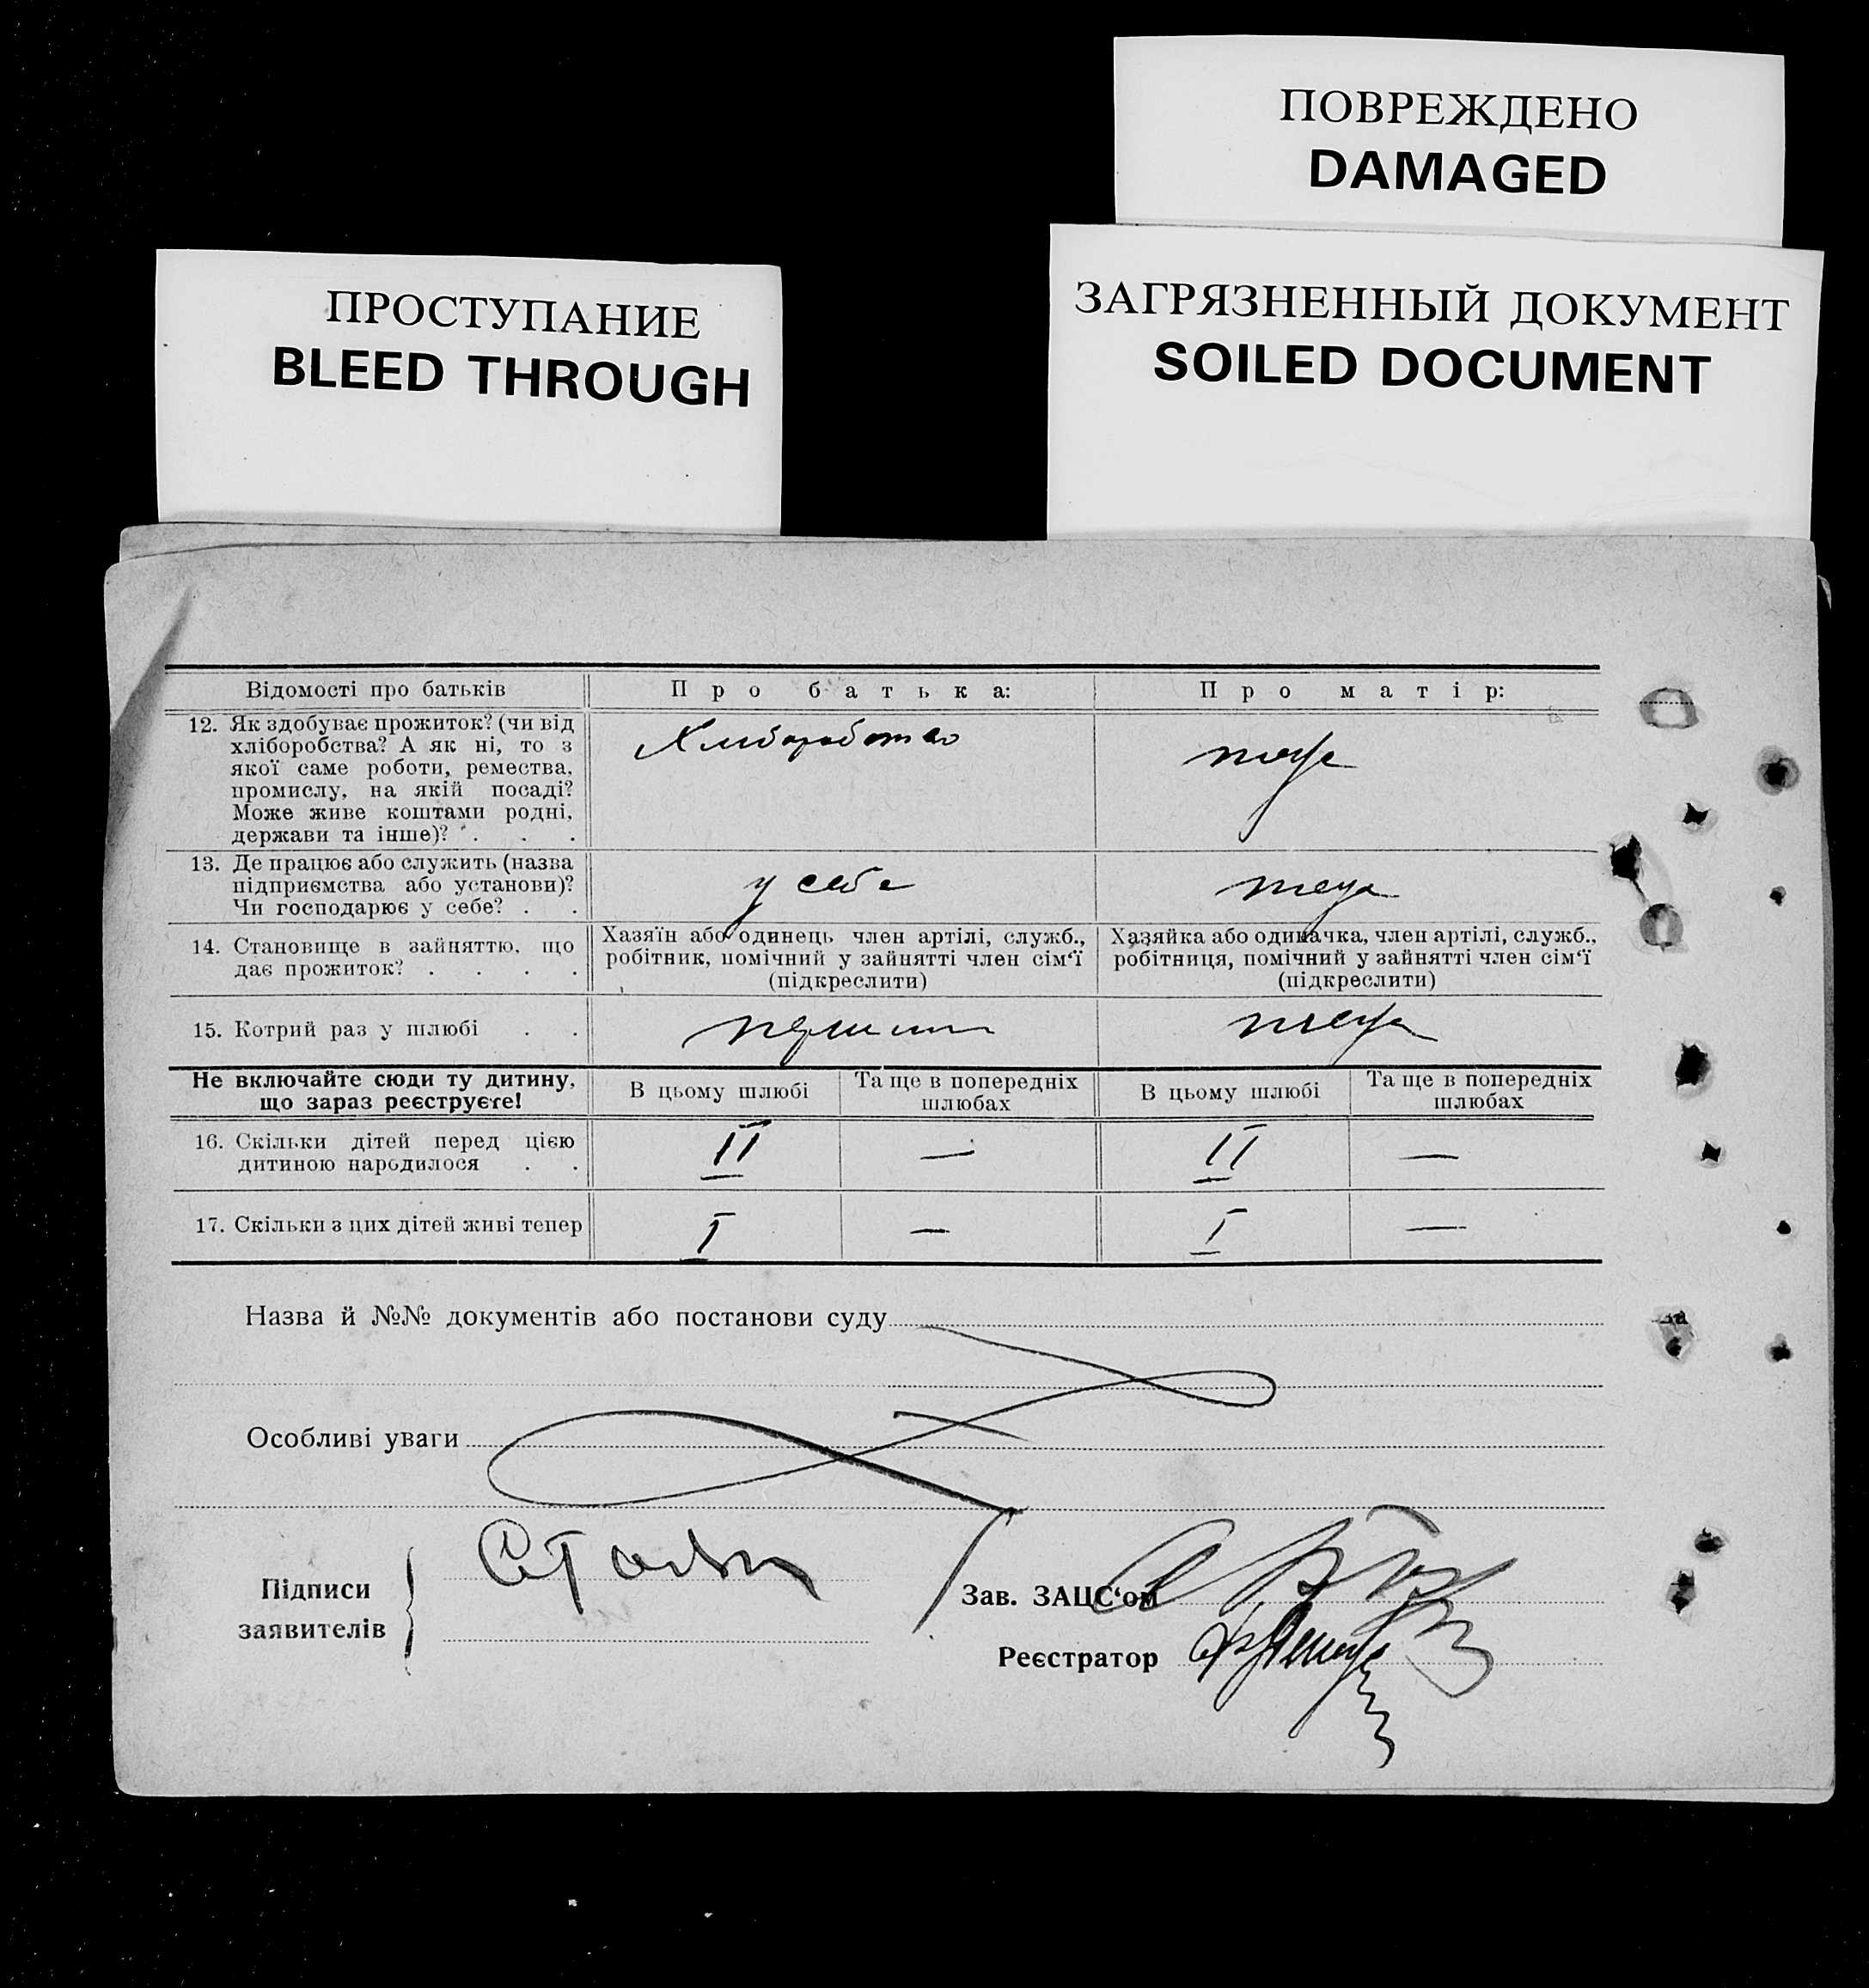 ПОВРЕЖДЕНО
DAMAGED
ПРОСТУПАНИЕ
BLEED THROUGH
ЗАГРЯЗНЕННЫЙ ДОКУМЕНТ
SOILED DOCUMENT
Відомості про батьків
Про батька:
Про матір:
12. Як здобуває прожиток? (чи від
хліборобства? А як ні, то з
якої саме роботи, ремества,
промислу, на якій посаді?
Може живе коштами родні,
держави та інше)? . . .
Хліборобство
теж
13. Де працює або служить (назва
підприємства або установи)?
Чи господарює у себе? . .
у себе
теж
14. Становище в зайняттю, що
дає прожиток? . . . .
Хазяїн або одинець член артілі, служб.,
робітник, помічний у зайнятті член сім‘ї
(підкреслити)
Хазяйка або одиначка, член артілі, служб.,
робітниця, помічний у зайнятті член сім‘ї
(підкреслити)
15. Котрий раз у шлюбі . .
теж
Не включайте сюди ту дитину,
що зараз реєструєте!
В цьому шлюбі
Та ще в попередніх
шлюбах
В цьому шлюбі
Та ще в попередніх
шлюбах
16. Скільки дітей перед цією
дитиною народилося . .
II
—
II
—
17. Скільки з цих дітей живі тепер
I
—
I
—
Назва й №№ документів або постанови суду
Особливі уваги
Підписи
заявителів
Зав. ЗАЦС‘ом
Реєстратор